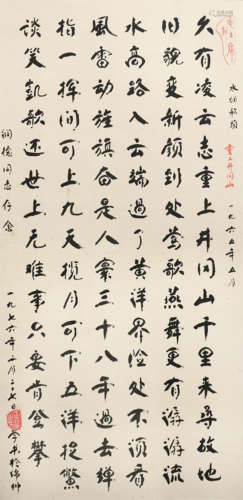 水调歌头 重上井冈山 一九六五年五月
久有凌云志重上井冈山千里来寻故地
旧貌变新颜到处莺歌燕舞更有潺潺流
水高路入云端过了黄洋界险处不须看
風雷动旌旗奋是人寰三十八年过去弹
指一挥间可上九天揽月可下五洋捉鳖
谈笑凯歌还世上无难事只要肯登攀
同志存念
一九七六年